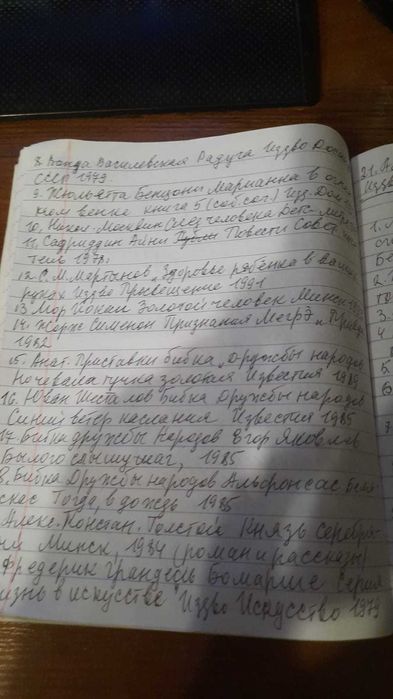 8. Ванда Василевская Радуга Изд-во Досаа
СССР 1979
9. Жюльетта Бенцони Марианна в огнен
ном венке книга 5 (соб.соч.) Изд. Дом
10. Никол. Москвин След человека Детс. Лите
11. Садриддин Айни Повести Совет. писа
тель 1978г.
12. С. М. Мартынов, Здоровье ребёнка в ваших
руках Изд-во Просвещение 1991
13 Мор Иокаи Золотой человек Минск
14. Жорж Сименон Признания Мегрэ Правда
1982
15. Анат. Приставкин биб-ка „Дружбы народов
Ночевала тучка золотая Известия 1989
16. Юван Шесталов биб-ка Дружбы народов
Синий ветер каслания Известия 1985
17. Биб-ка дружбы народов Егор Яковлев
Былого слышу шаг, 1985
8. Биб-ка Дружбы народов Альфонсас Беля
скас Тогда, в дождь 1985
Алекс. Констан. Толстой Князь серебря
ный Минск, 1984 (роман и рассказы)
Фредерик Грандель Бомарше Серия
изнь в искусстве Изд-во Искусство 1979
21. А
Изд-во